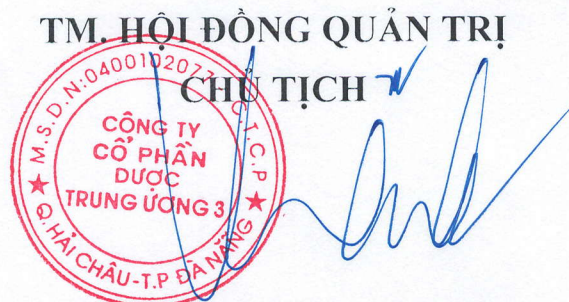 TM. HỘI ĐỒNG QUẢN TRỊ
CHỦ TỊCH
M.S.D.N:040010207
C.T.C.P
CÔNG TY
CỔ PHẦN
DƯỢC
TRUNG ƯƠNG 3
Q.HẢI CHÂU-T.P ĐÀ NẴNG